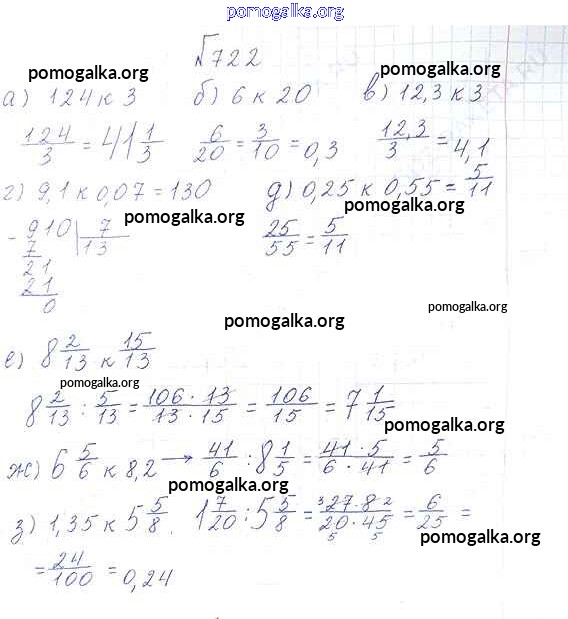 pomogalka.org
№722
pomogalka.org pomogalka.org
а) 124 к 3 б) 6 к 20 в) 12,3 к 3
124/3 = 41 1/3 6/20 = 3/10 = 0,3 12,3/3 = 4,1
г) 9,1 к 0,07 = 130 д) 0,25 к 0,55 = 5/11
pomogalka.org pomogalka.org
- 910 | 7
7 13
25/55 = 5/11
21
21
0
pomogalka.org
pomogalka.org
е) 8 2/13 к 15/13
pomogalka.org
8 2/13 : 5/13 = 106 · 13/13 · 15 = 106/15 = 7 1/15
pomogalka.org
ж) 6 5/6 к 8,2 → 41/6 : 8 1/5 = 41 · 5/6 · 41 = 5/6
pomogalka.org
з) 1,35 к 5 5/8. 1 7/20 : 5 5/8 = 3 27 · 8 2/20 · 45 = 6/25 =
5 5
pomogalka.org
= 24/100 = 0,24